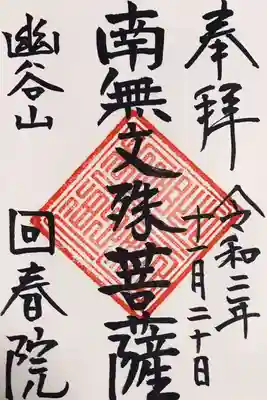 奉拝 令和三年
十一月二十日
南無文殊菩薩
幽谷山 回春院